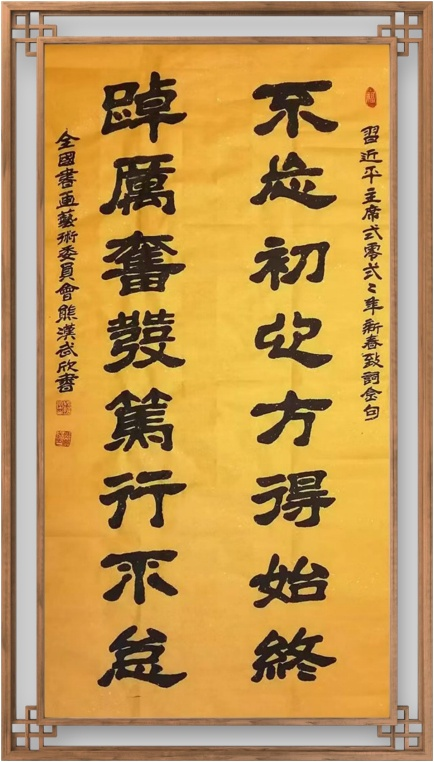 習近平主席弍零弍〻年新春致詞金句
不忘初心方得始終
踔厲奮發篤行不怠
全國書画藝術委員會熊漢武欣書